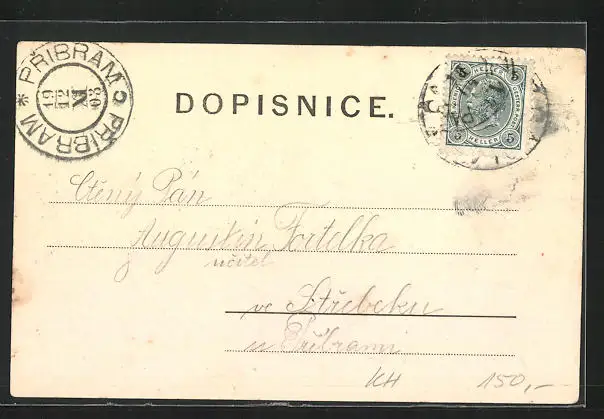 PŘIBRAM
PŘIBRAM
19
12
XI
03
DOPISNICE.
5 5
HELLER
5 HELLER 5
Ctěný Pán
Augustin Fortelka
učitel
ve Střebsku
u Příbrami
KH 150,-